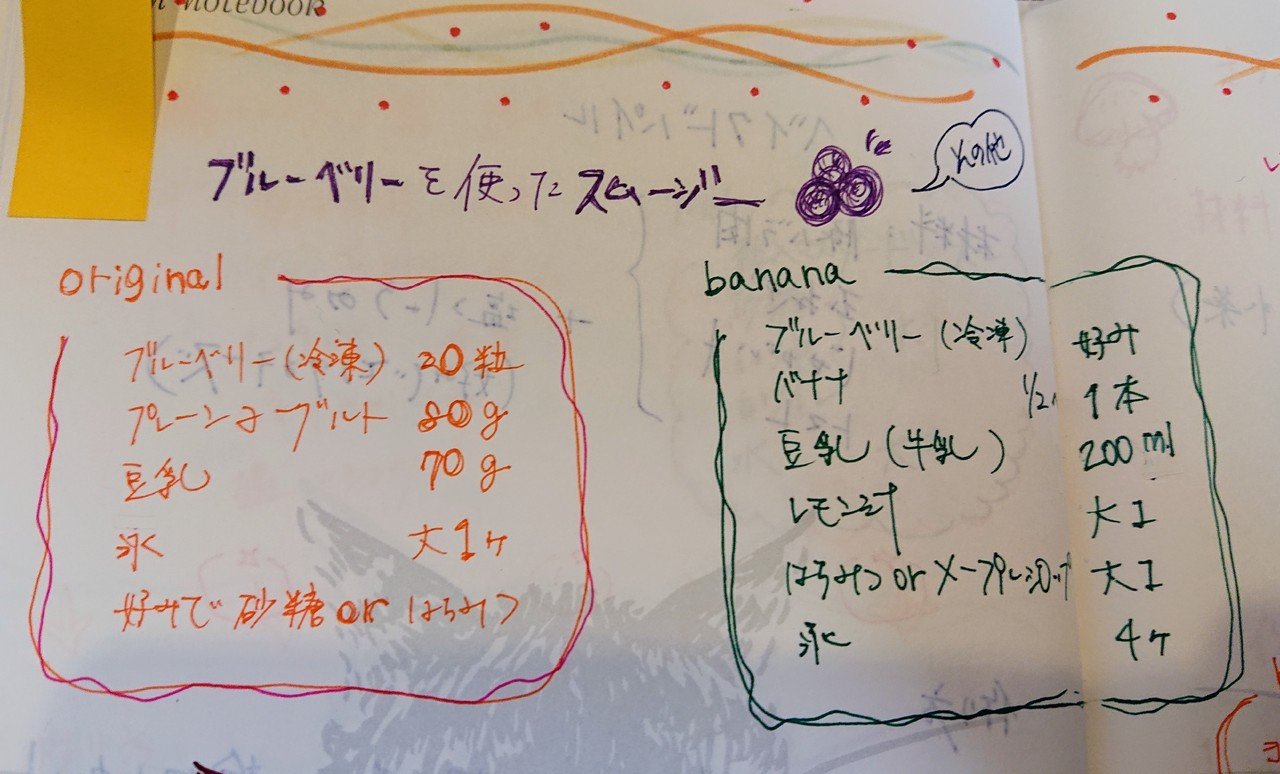 notebook
ブルーベリーを使ったスムージー
その他
original
ブルーベリー(冷凍) 20粒
プレーンヨーグルト 80g
豆乳 70g
氷 大1ヶ
好みで砂糖or はちみつ
banana
ブルーベリー(冷凍) 好み
バナナ 1/2 1本
豆乳(牛乳) 200ml
レモン汁 大1
はちみつorメープルシロップ 大1
氷 4ヶ